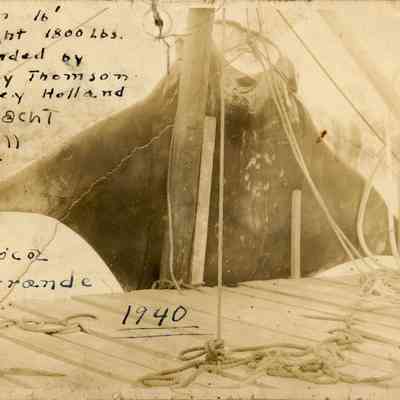 16'
ht 1800 Lbs.
ded by
y Thomson
ey Holland
acht
ll
oca
rande
1940